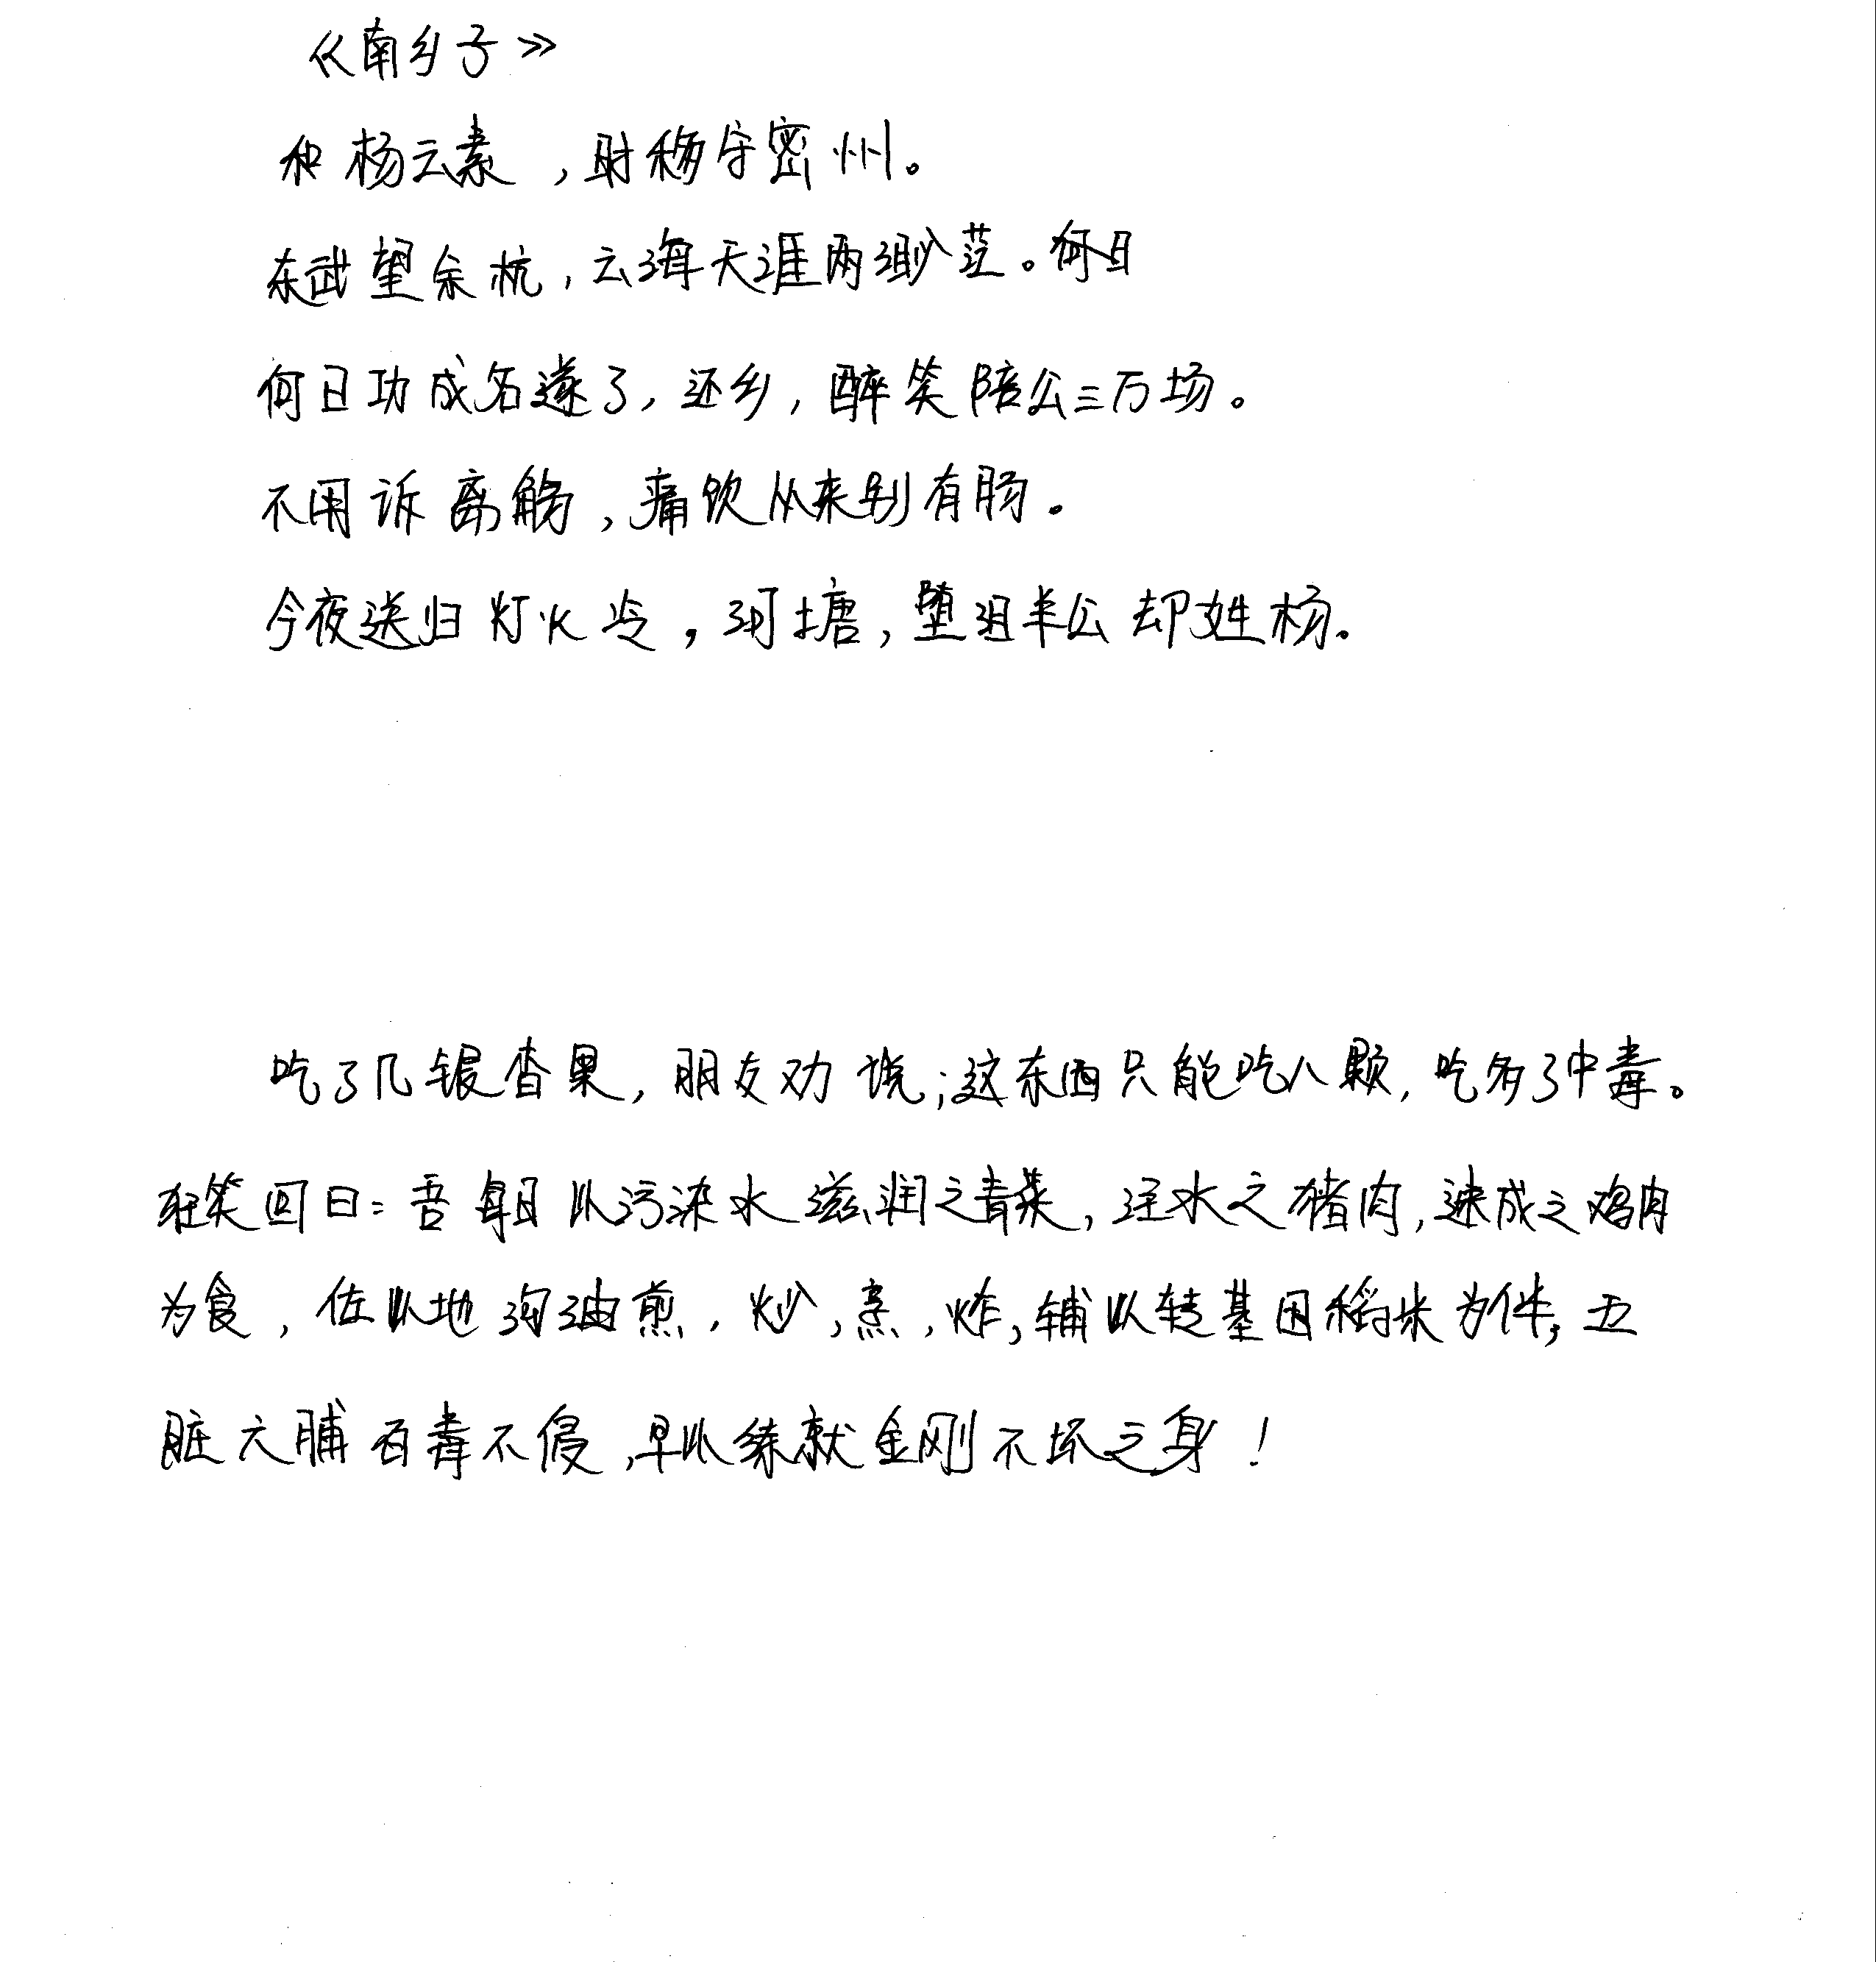 《南乡子》
和杨云素，时移守密州。
东武望余杭，云海天涯两渺茫。何日
何日功成名遂了，还乡，醉笑陪公三万场。
不用诉离觞，痛饮从来别有肠。
今夜送归灯火冷，河塘，堕泪羊公却姓杨。
吃了几银杏果，朋友劝说；这东西只能吃八颗，吃多了中毒。
狂笑回曰：吾每日以污染水滋润之青菜，注水之猪肉，速成之鸡肉
为食，佐以地沟油煎，炒，烹，炸，辅以转基因稻米为伴，五
脏六脯百毒不侵，早以练就金刚不坏之身！